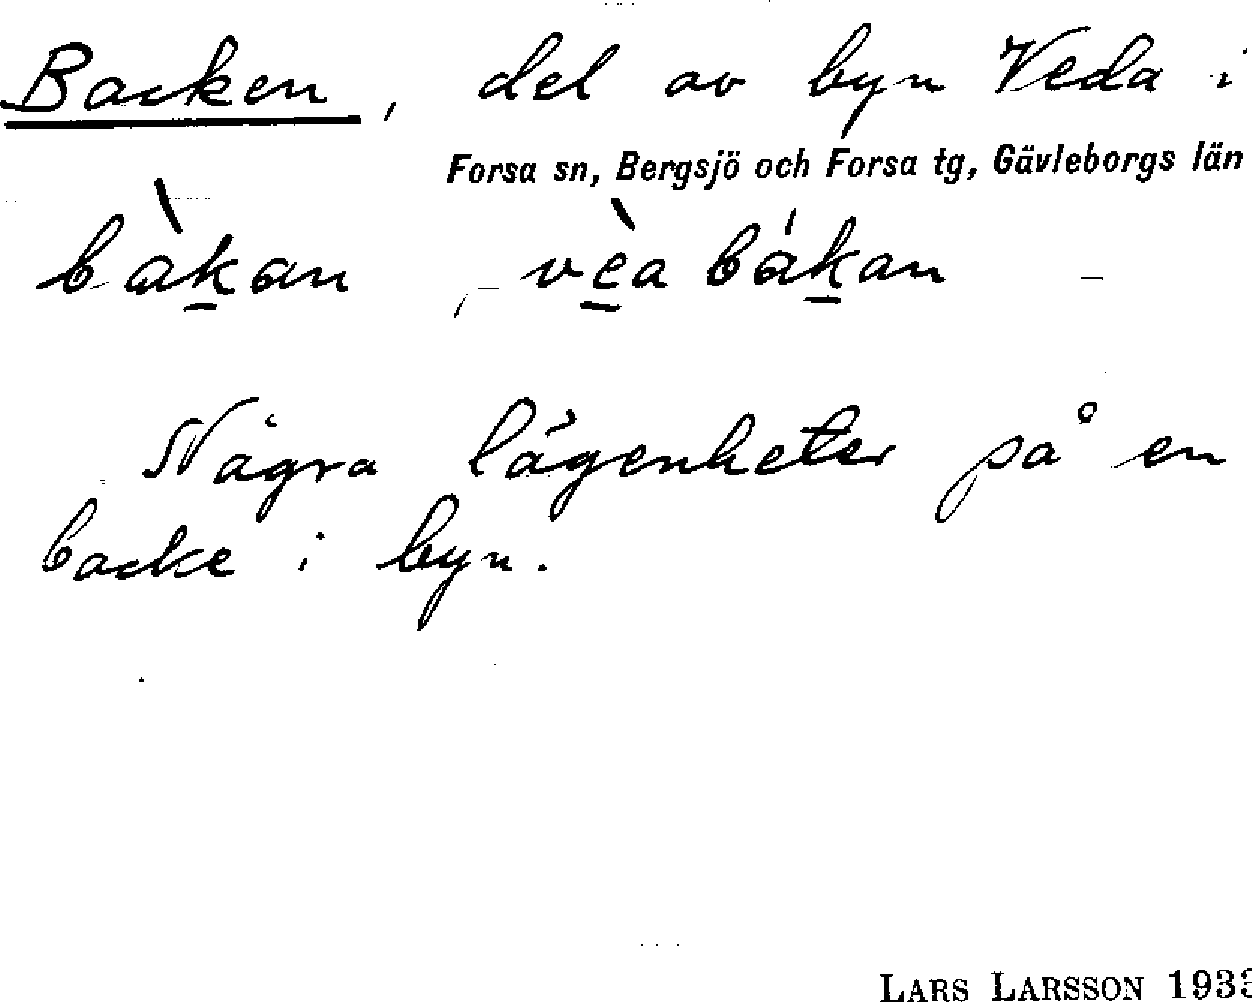 Backen, del av byn Veda i
Forsa sn, Bergsjö och Forsa tg, Gävleborgs län
bàkan, vèa bákan
Några lägenheter på en
backe i byn.
LARS LARSSON 1933